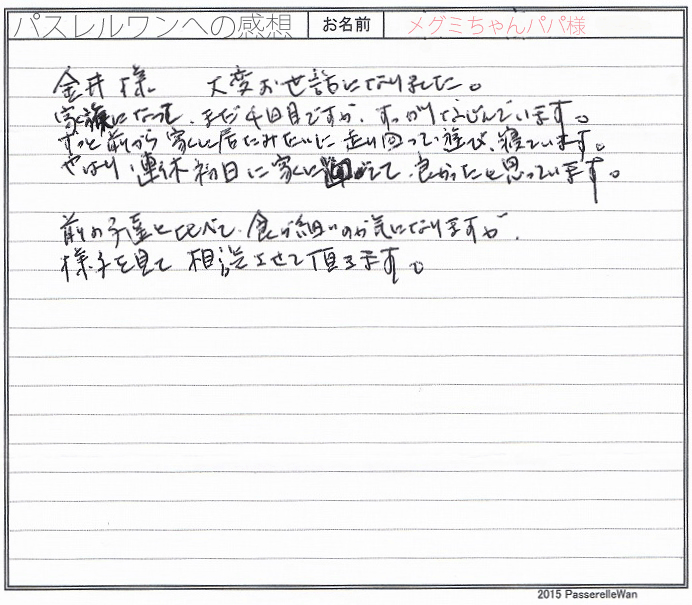 パスレルワンへの感想 お名前 メグミちゃんパパ様
金井様 大変お世話になりました。
家族になって、まだ4日目ですが、すっかりなじんでいます。
ずっと前から家に居たみたいに走り回って遊び、寝ています。
やはり、連休初日に家に迎えて、良かったと思っています。
前の子達と比べて、食が細いのが気になりますが、
様子を見て相談させて頂きます。
2015 PasserelleWan